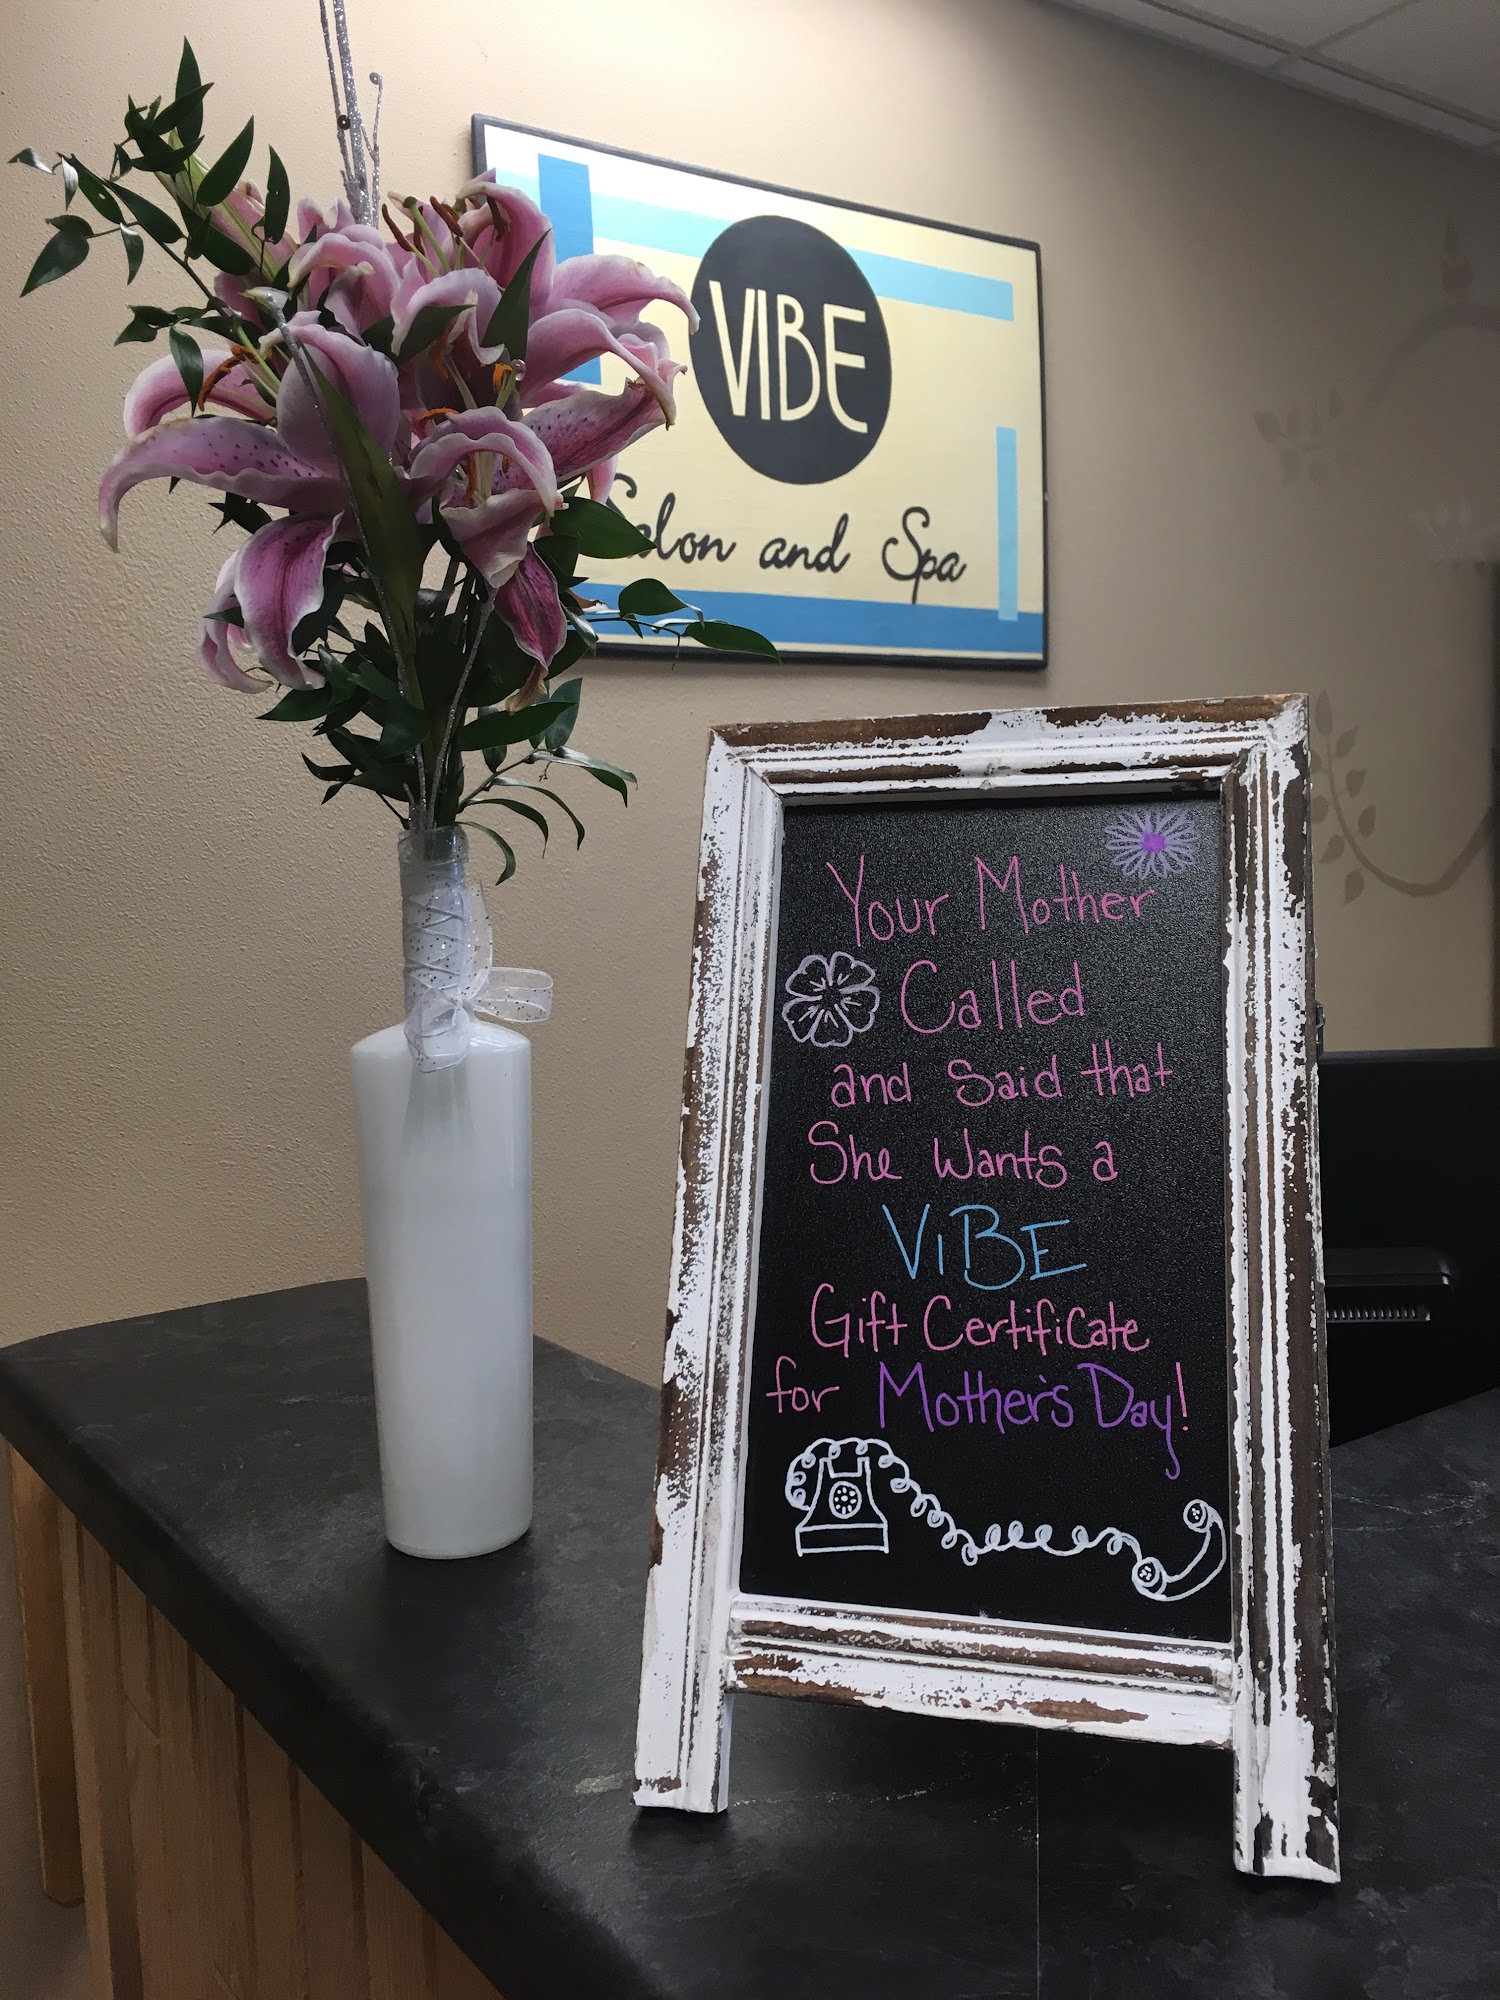 VIBE
Salon and Spa
Your Mother
Called
and Said that
She Wants a
ViBE
Gift Certificate
for Mother's Day!